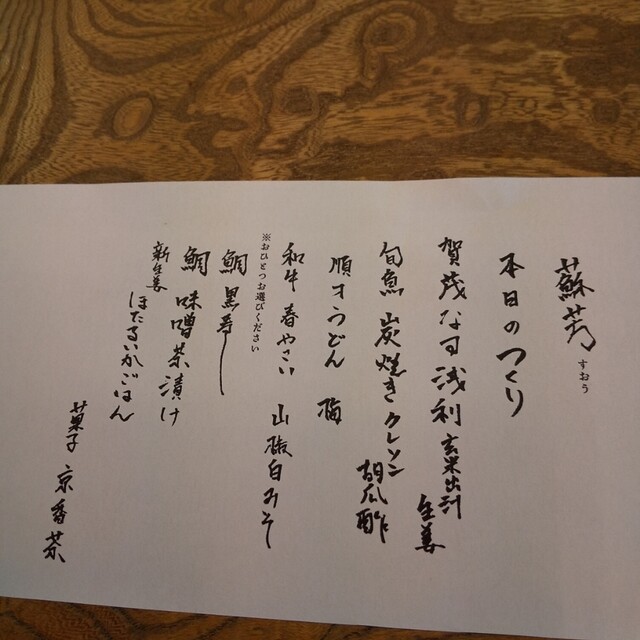 蘇芳
すおう
本日のつくり
賀茂なす 浅利 玄米出汁 生姜
旬魚 炭焼き クレソン 胡瓜酢
順才うどん 梅
和牛 春やさい 山椒白みそ
※おひとつお選びください
鯛 黒寿し
鯛 味噌茶漬け
新生姜 ほたるいかごはん
菓子 京番茶